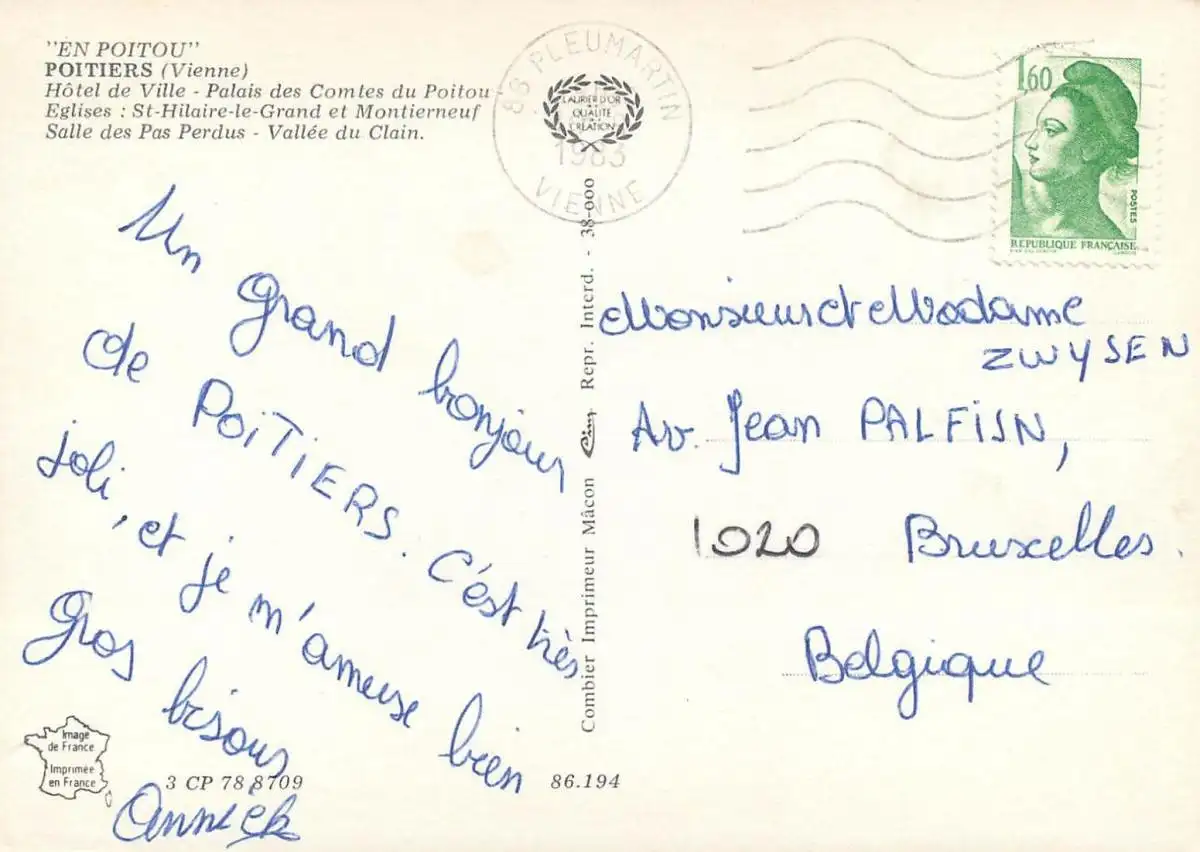 "EN POITOU"
POITIERS (Vienne)
Hôtel de Ville - Palais des Comtes du Poitou
Eglises : St-Hilaire-le-Grand et Montierneuf
Salle des Pas Perdus - Vallée du Clain.
86 PLEUMARTIN
1983
VIENNE
LAURIER D'OR
QUALITÉ
CRÉATION
1,60
POSTES
RÉPUBLIQUE FRANÇAISE
Un grand bonjour
de POITIERS. C'est très
joli, et je m'amuse bien
Gros bisous
Annick
Combier Imprimeur Mâcon Cim Repr. Interd. - 38-000
Monsieur et Madame
ZWYSEN
Av. Jean PALFIJN,
1020 Bruxelles.
Belgique
Image
de France
Imprimée
en France
3 CP 78 8709
86.194